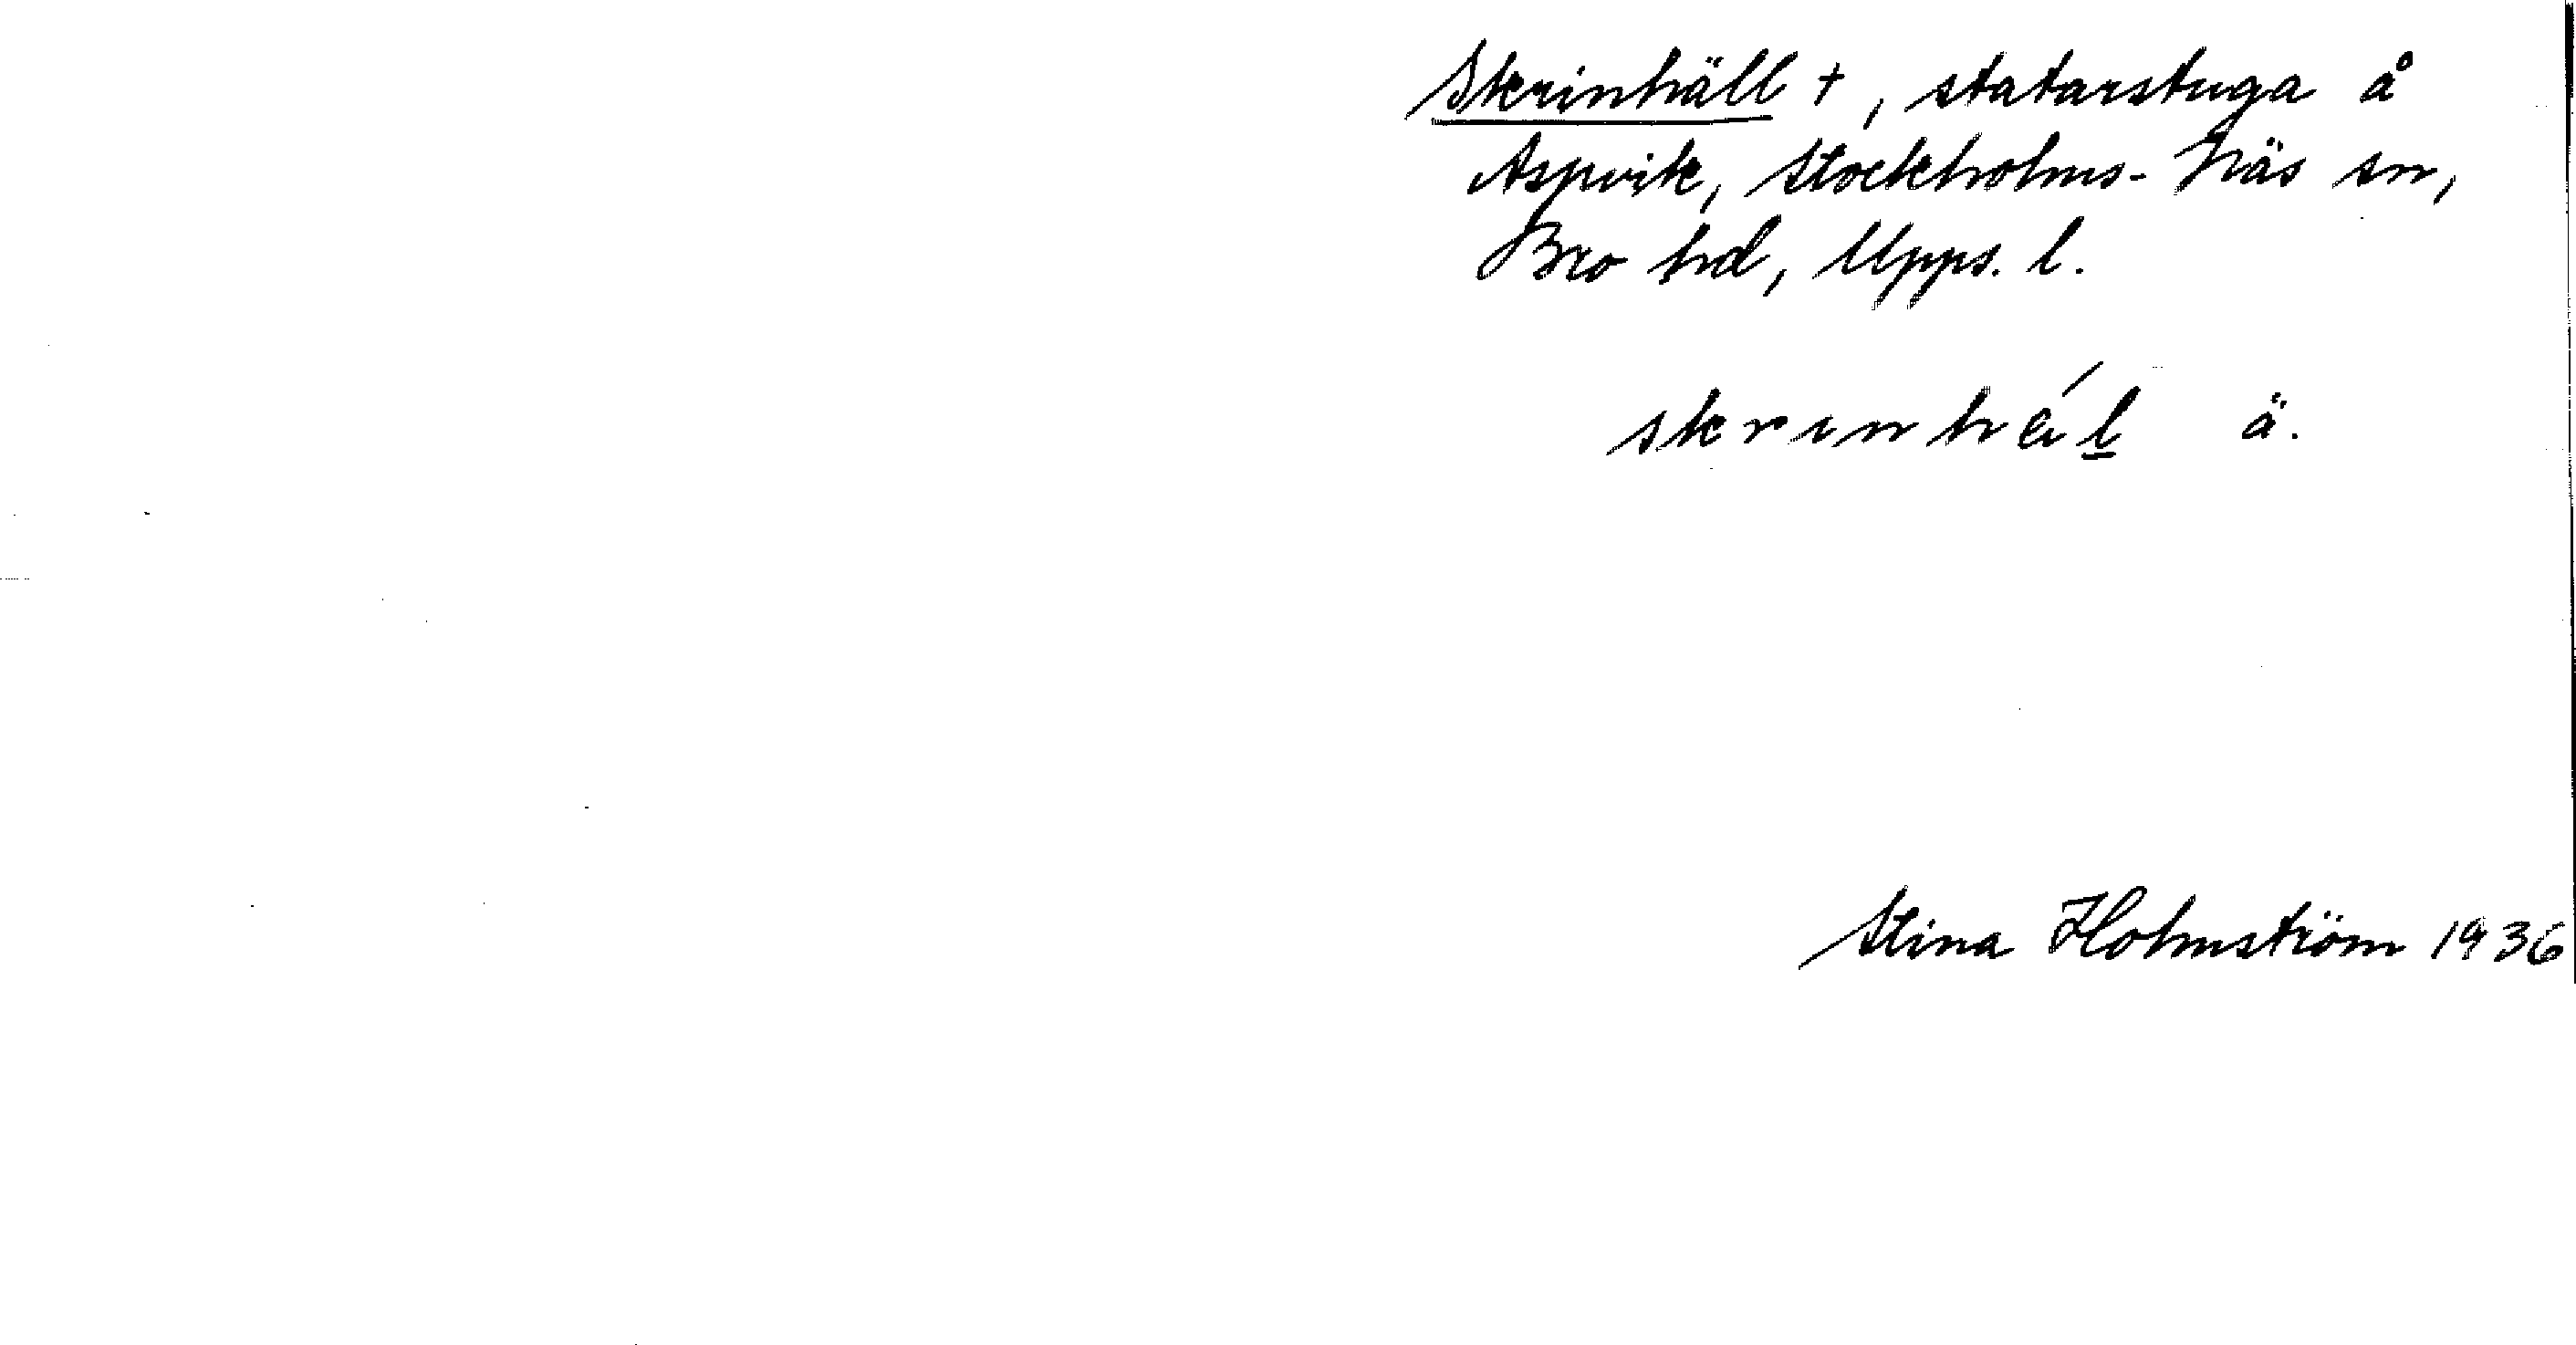 Skrinhäll †, statarstuga å
Aspvik, Stockholms-Näs sn,
Bro hd, Upps. l.
skrinhä́l ä.
Stina Holmström 1936